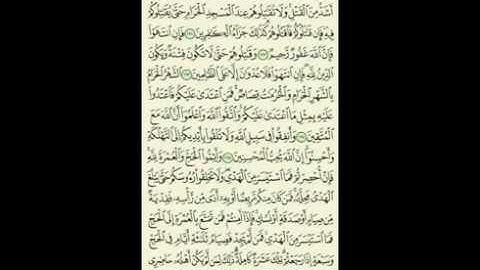 أَشَدُّ مِنَ ٱلْقَتْلِ وَلَا تُقَٰتِلُوهُمْ عِندَ ٱلْمَسْجِدِ ٱلْحَرَامِ حَتَّىٰ يُقَٰتِلُوكُمْ
فِيهِ فَإِن قَٰتَلُوكُمْ فَٱقْتُلُوهُمْ كَذَٰلِكَ جَزَآءُ ٱلْكَٰفِرِينَ ١٩١ فَإِنِ ٱنتَهَوْا۟
فَإِنَّ ٱللَّهَ غَفُورٌ رَّحِيمٌ ١٩٢ وَقَٰتِلُوهُمْ حَتَّىٰ لَا تَكُونَ فِتْنَةٌ وَيَكُونَ
ٱلدِّينُ لِلَّهِ فَإِنِ ٱنتَهَوْا۟ فَلَا عُدْوَٰنَ إِلَّا عَلَى ٱلظَّٰلِمِينَ ١٩٣ ٱلشَّهْرُ ٱلْحَرَامُ
بِٱلشَّهْرِ ٱلْحَرَامِ وَٱلْحُرُمَٰتُ قِصَاصٌ فَمَنِ ٱعْتَدَىٰ عَلَيْكُمْ فَٱعْتَدُوا۟
عَلَيْهِ بِمِثْلِ مَا ٱعْتَدَىٰ عَلَيْكُمْ وَٱتَّقُوا۟ ٱللَّهَ وَٱعْلَمُوٓا۟ أَنَّ ٱللَّهَ مَعَ
ٱلْمُتَّقِينَ ١٩٤ وَأَنفِقُوا۟ فِى سَبِيلِ ٱللَّهِ وَلَا تُلْقُوا۟ بِأَيْدِيكُمْ إِلَى ٱلتَّهْلُكَةِ
وَأَحْسِنُوٓا۟ إِنَّ ٱللَّهَ يُحِبُّ ٱلْمُحْسِنِينَ ١٩٥ وَأَتِمُّوا۟ ٱلْحَجَّ وَٱلْعُمْرَةَ لِلَّهِ
فَإِنْ أُحْصِرْتُمْ فَمَا ٱسْتَيْسَرَ مِنَ ٱلْهَدْىِ وَلَا تَحْلِقُوا۟ رُءُوسَكُمْ حَتَّىٰ يَبْلُغَ
ٱلْهَدْىُ مَحِلَّهُۥ فَمَن كَانَ مِنكُم مَّرِيضًا أَوْ بِهِۦٓ أَذًى مِّن رَّأْسِهِۦ فَفِدْيَةٌ
مِّن صِيَامٍ أَوْ صَدَقَةٍ أَوْ نُسُكٍ فَإِذَآ أَمِنتُمْ فَمَن تَمَتَّعَ بِٱلْعُمْرَةِ إِلَى ٱلْحَجِّ
فَمَا ٱسْتَيْسَرَ مِنَ ٱلْهَدْىِ فَمَن لَّمْ يَجِدْ فَصِيَامُ ثَلَٰثَةِ أَيَّامٍ فِى ٱلْحَجِّ
وَسَبْعَةٍ إِذَا رَجَعْتُمْ تِلْكَ عَشَرَةٌ كَامِلَةٌ ذَٰلِكَ لِمَن لَّمْ يَكُنْ أَهْلُهُۥ حَاضِرِى